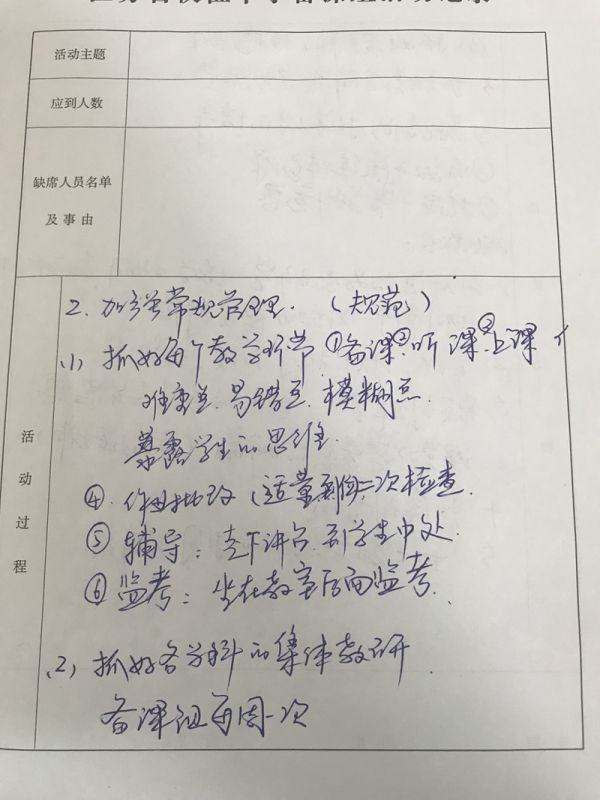 活动主题
应到人数
缺席人员名单
及事由
活动过程
2. 加强常规管理. (规范)
(1) 抓好每个教学环节 ①备课. ②听课. ③上课 (
难重点. 易错点. 模糊点.
暴露学生的思维.
④. 作业批改 (适量 二次检查.
⑤ 辅导: 走下讲台. 到学生中处.
⑥ 监考: 坐在教室后面监考.
(2) 抓好各学科的集体教研
备课组每周一次